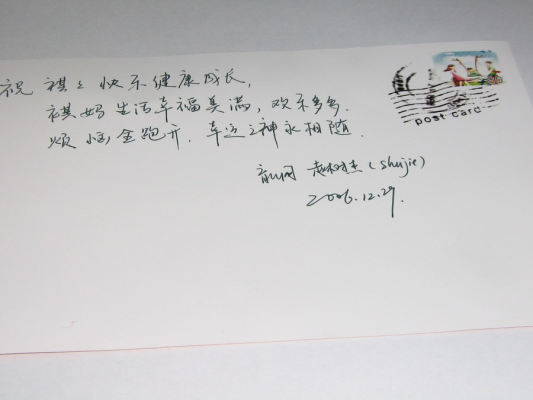 祝 祺祺快乐健康成长,
祺妈生活幸福美满,欢乐多多.
烦恼全跑开.幸运之神永相随.
赵树杰(shujie)
2006.12.29.
post card